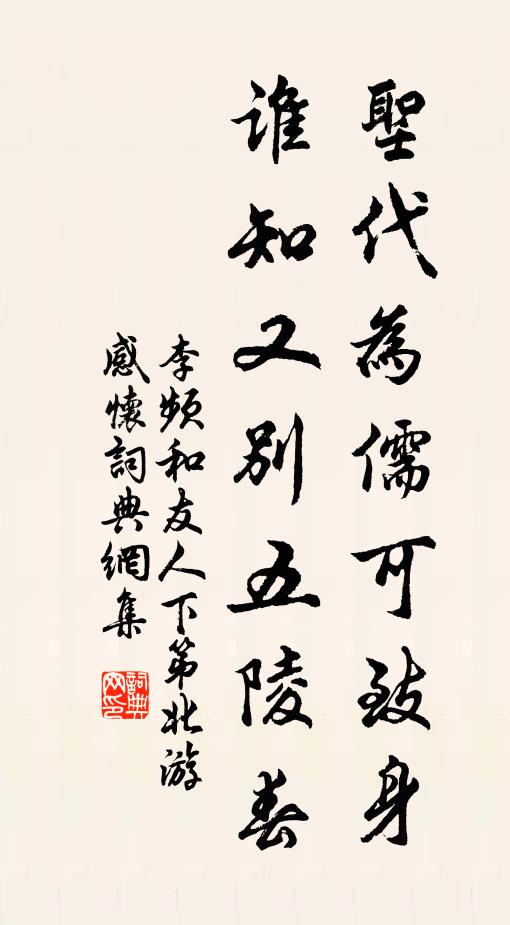 聖代為儒可致身
誰知又別五陵春
李頻和友人下第北游
感懷詞典網集
詞典
网印